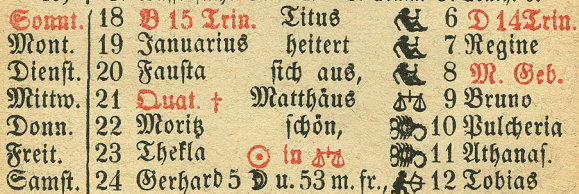 Sonnt. 18 B 15 Trin. Titus ♍ 6 D 14 Trin.
Mont. 19 Januarius heitert ♍ 7 Regine
Dienst. 20 Fausta sich aus, ♍ 8 M. Geb.
Mittw. 21 Quat. † Matthäus ♎ 9 Bruno
Donn. 22 Moritz schön, ♏ 10 Pulcheria
Freit. 23 Thekla ☉ in ♎ ♏ 11 Athanas.
Samst. 24 Gerhard 5 ☽ u. 53 m. fr., ♐ 12 Tobias